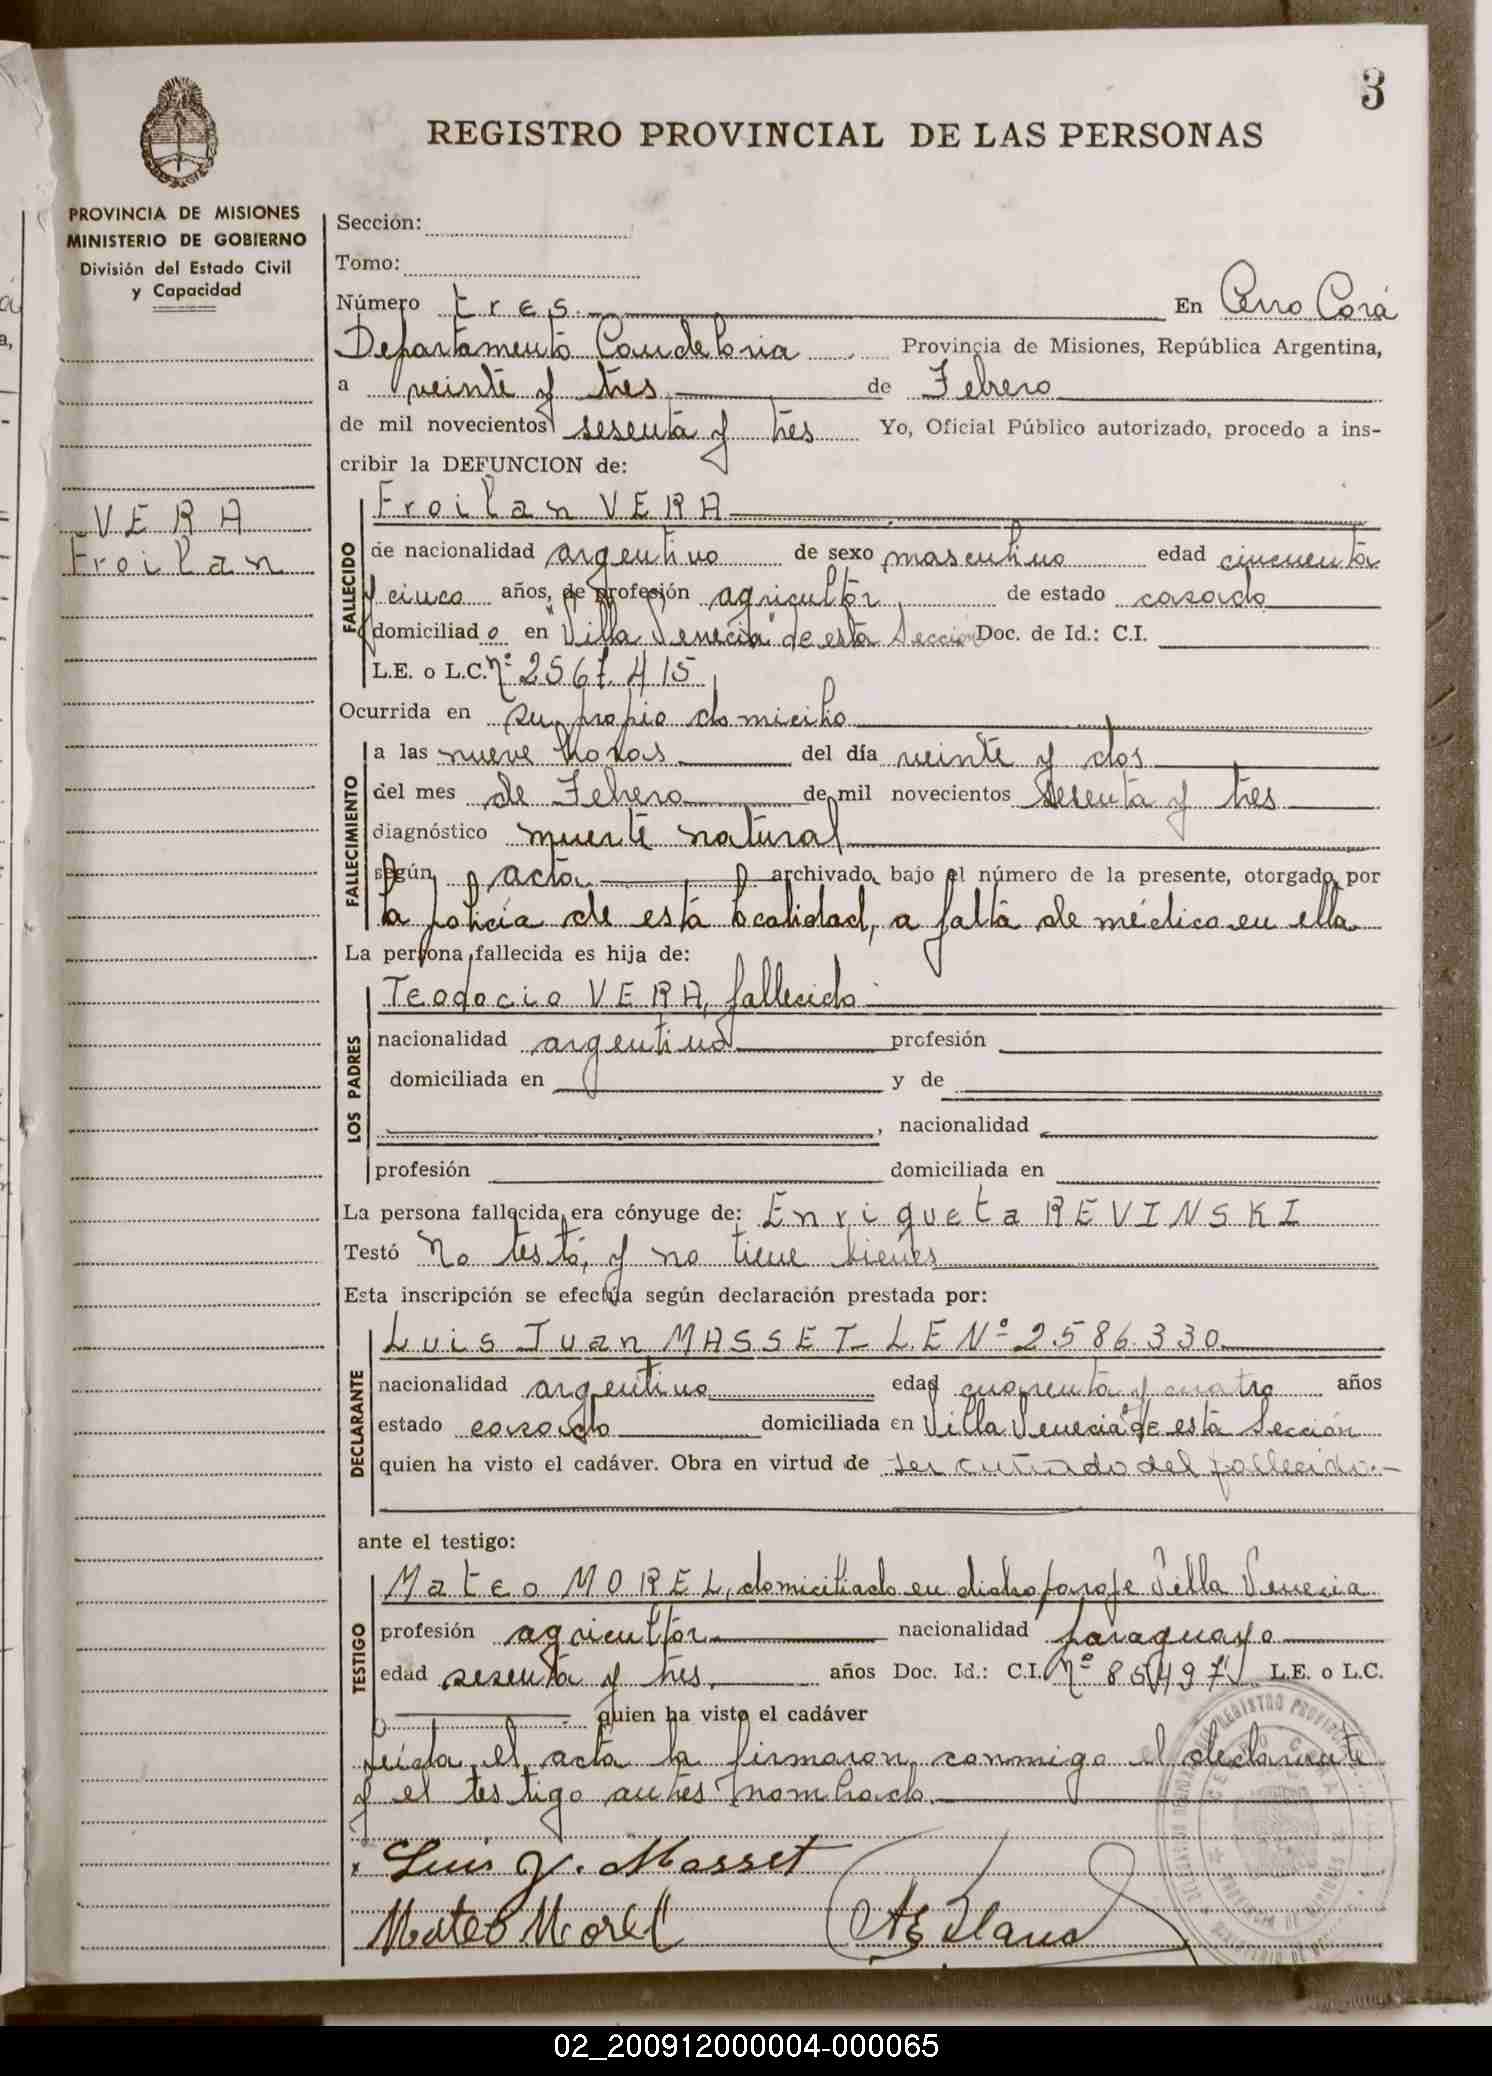 3
REGISTRO PROVINCIAL DE LAS PERSONAS
PROVINCIA DE MISIONES
MINISTERIO DE GOBIERNO
División del Estado Civil
y Capacidad
VERA
Froilan
Sección:
Tomo:
Número tres. En Cerro Corá
Departamento Candelaria Provincia de Misiones, República Argentina,
a veinte y tres de Febrero
de mil novecientos sesenta y tres Yo, Oficial Público autorizado, procedo a ins-
cribir la DEFUNCION de:
FALLECIDO
Froilan VERA
de nacionalidad argentino de sexo masculino edad cincuenta
y cinco años, de profesión agricultor de estado casado
domiciliado en "Villa Venecia" de esta Seccion Doc. de Id.: C.I.
L.E. o L.C. nº 2567.415
Ocurrida en su propio domicilio
FALLECIMIENTO
a las nueve horas del día veinte y dos
del mes de Febrero de mil novecientos sesenta y tres
diagnóstico muerte natural
según acta archivada bajo el número de la presente, otorgada por
la policía de está localidad, a falta de médico en ella
La persona fallecida es hija de:
LOS PADRES
Teodocio VERA, fallecido
nacionalidad argentino profesión
domiciliada en y de
, nacionalidad
profesión domiciliada en
La persona fallecida era cónyuge de: Enriqueta REVINSKI
Testó No testó, y no tiene bienes
Esta inscripción se efectúa según declaración prestada por:
DECLARANTE
Luis Juan MASSET- L.E Nº 2.586.330
nacionalidad argentino edad cuarenta y cuatro años
estado casado domiciliada en Villa Venecia" de está Sección
quien ha visto el cadáver. Obra en virtud de ser cuñado del fallecido.-
ante el testigo:
TESTIGO
Mateo MOREL, domiciliado en dicho paraje Villa Venecia
profesión agricultor nacionalidad paraguayo
edad sesenta y tres. años Doc. Id.: C.I. nº L.E. o L.C.
quien ha visto el cadáver
Leida el acta la firmaron conmigo el declarante
y el testigo antes nombrado.
Luis J. Masset
Mateo Morel
02_200912000004-000065